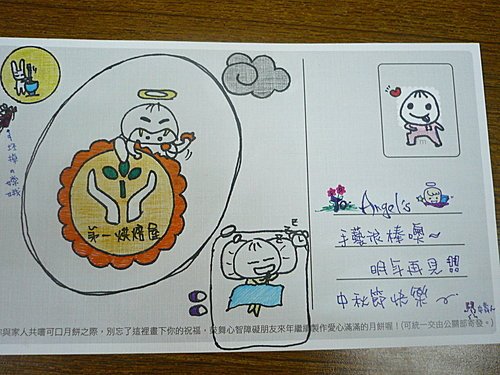 第一烘焙屋
z z z
Angel's
手藝很棒噢~
明年再見
中秋節快樂~
與家人共嚐可口月餅之際，別忘了這裡畫下你的祝福，鼓舞心智障礙朋友來年繼續製作愛心滿滿的月餅喔！(可統一交由公關部寄發。)